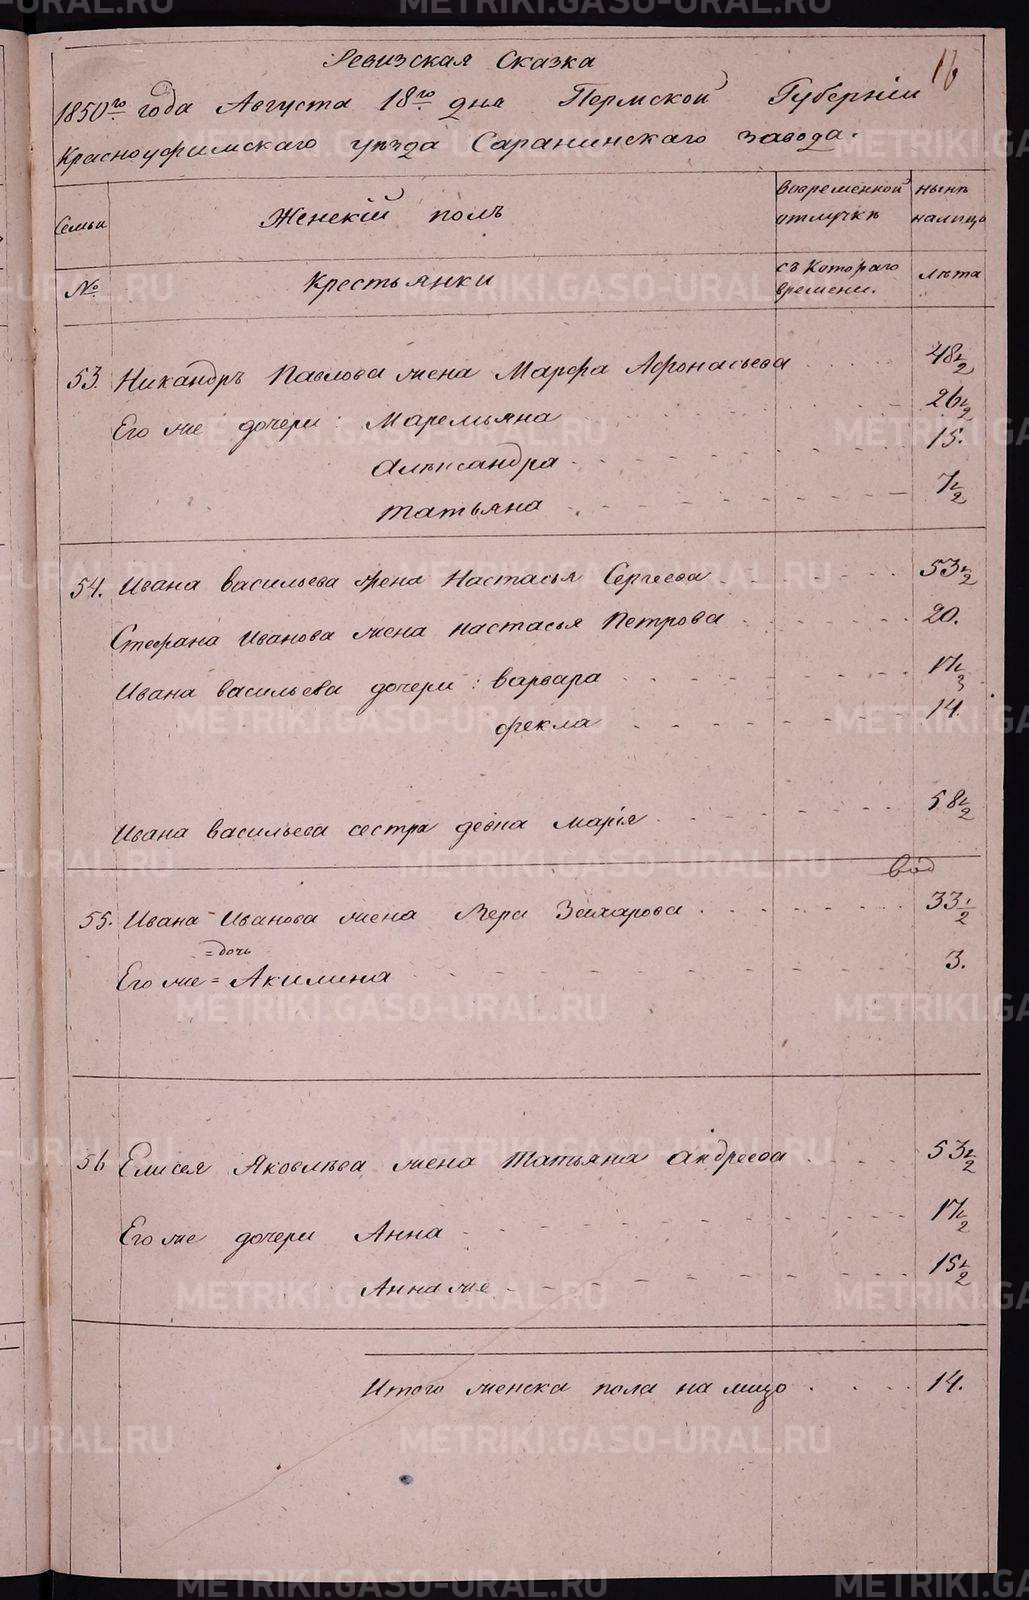 16
Ревизская Сказка
1850го года Августа 18го дня Пермской Губернiи
Красноуфимского уѣзда Саранинскаго завода.
Семьи
Женскiй полъ
вовременной отлучкѣ
нынѣ налицо
№
Крестьянки
съ Котораго времени.
лѣта
53. Никандръ Павлова жена Марфа Афонасьева 48 1/2
Его же дочери: Маремьяна 26 1/2
Александра 15.
Татьяна 7 1/2
54. Ивана Васильева жена Настасья Сергеева 53 1/2
Стефана Иванова жена Настасья Петрова 20.
Ивана Васильева дочери: Варвара 17 1/3
Фекла 14.
Ивана Васильева сестра девка Марiя 58 1/2
55. Ивана Иванова жена Захарова 33 1/2
= дочь
Его же = Акилина 3.
56 Елисея Яковлѣва жена Татьяна Андреева 53 1/2
Его же дочери Анна 17 1/2
Анна же 15 1/2
Итого женска пола на лицо 14.
METRIKI.GASO-URAL.RU